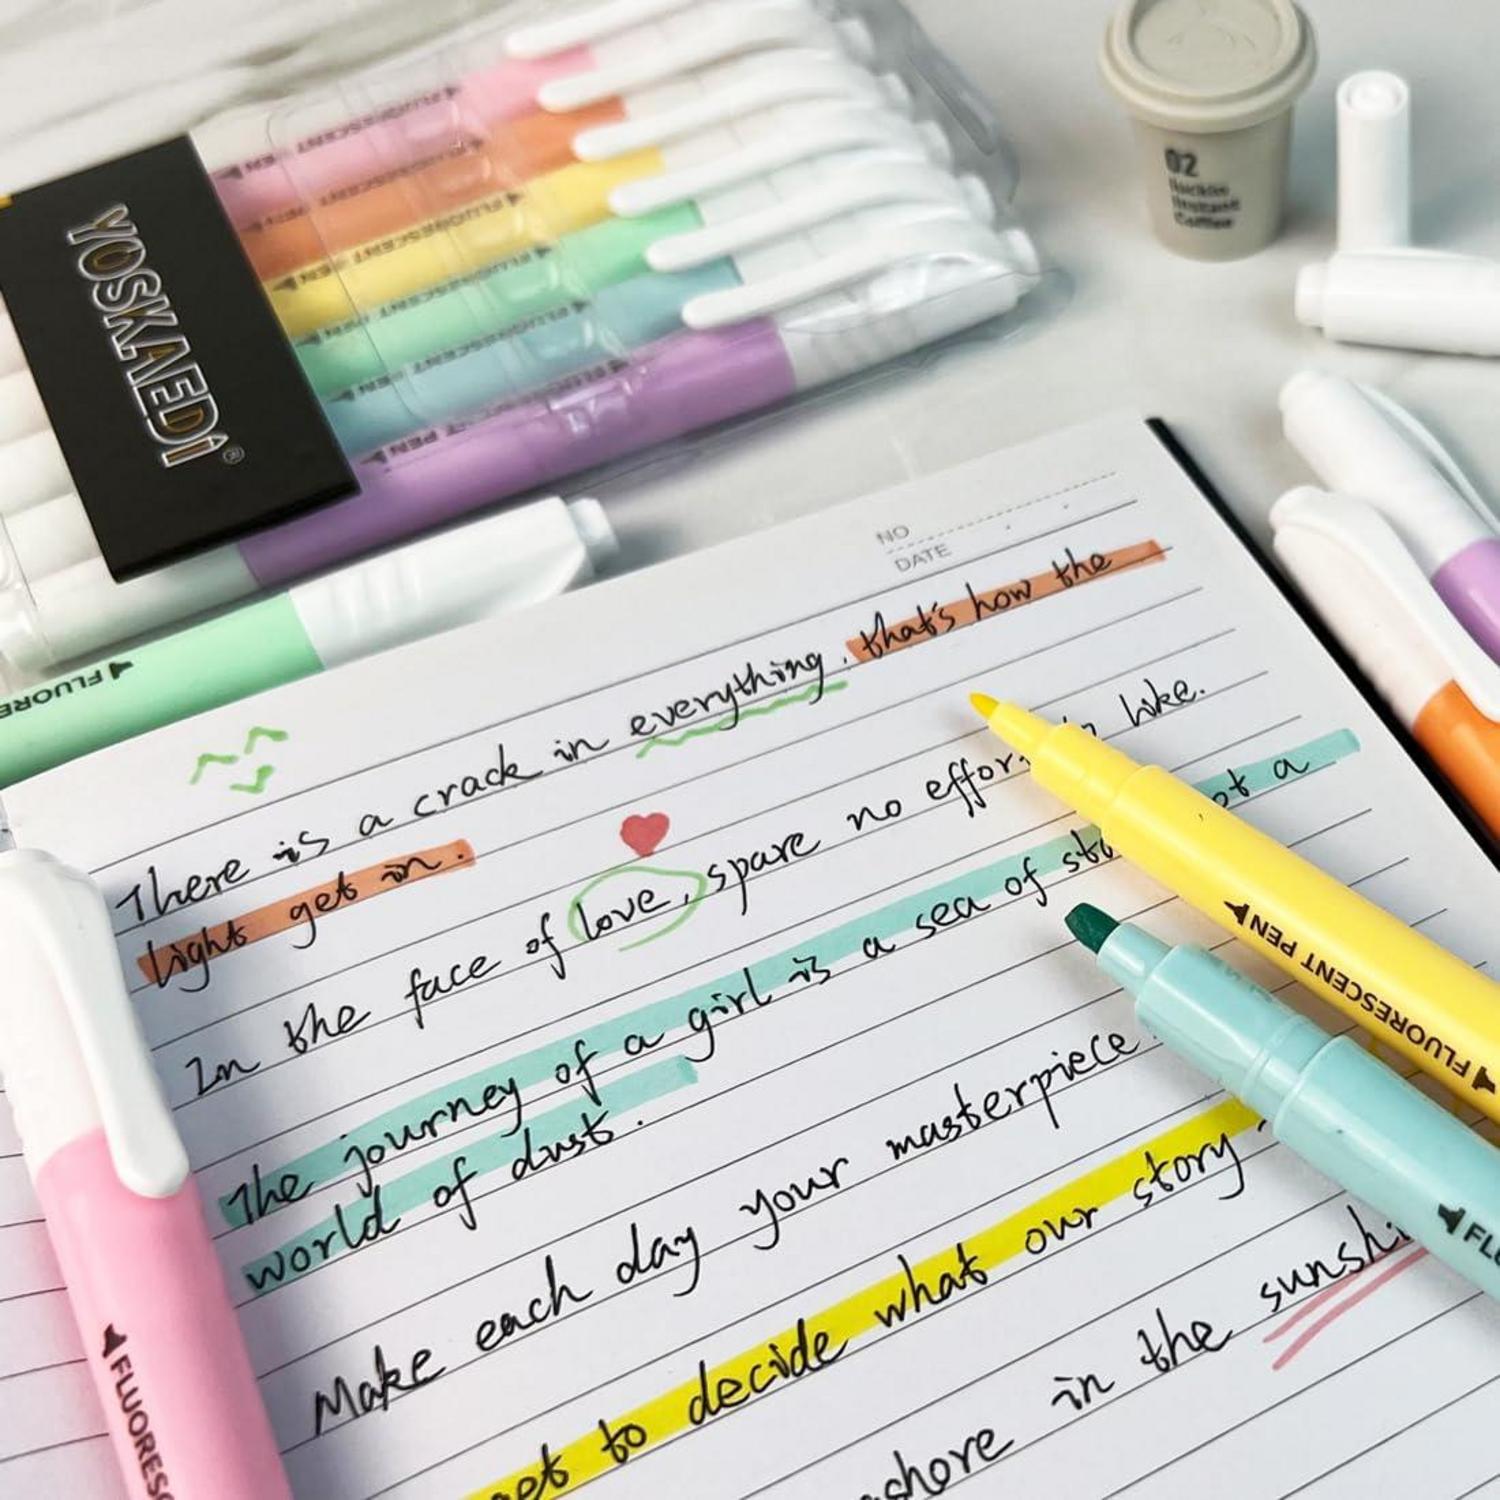 YOSKAEDI®
FLUORESCENT PEN
FLUORESCENT PEN
FLUORESCENT PEN
FLUORESCENT PEN
FLUORESCENT PEN
FLUORESCENT PEN
02
Coffee
FLUORE
NO
DATE
There is a crack in everything. that's how the
light get in.
In the face of love, spare no effor like.
The journey of a girl is a sea of sta ot a
world of dust.
Make each day your masterpiece
get to decide what our story
shore in the sunshi
FLUORESCENT PEN
FLUO
FL
FLUORESC